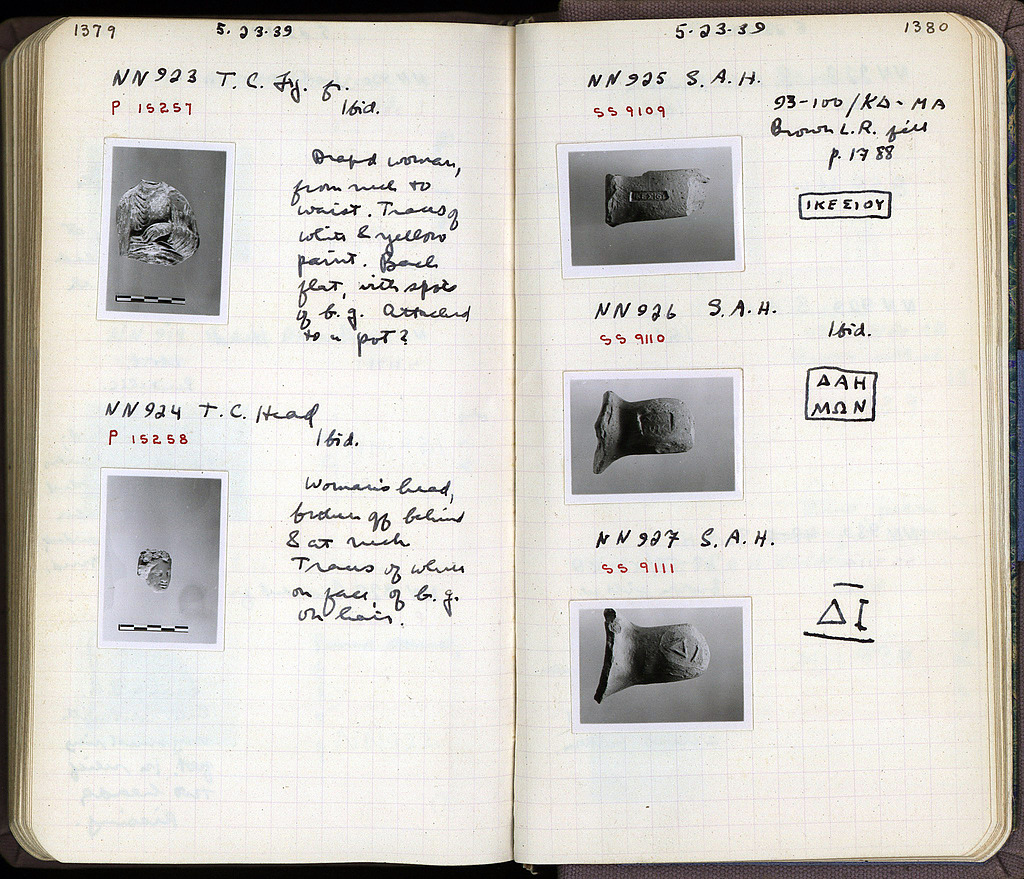 1379
5-23-39
NN923 T. C. Fig. fr.
P 15257
Ibid.
Draped woman,
from neck to
waist. Traces of
white & yellow
paint. Back
flat, with spots
of b. g. Attached
to a pot?
NN924 T. C. Head
P 15258
Ibid.
Woman's head,
broken off behind
& at neck
Traces of white
on face, of b. g.
on hair.
5-23-39
1380
NN925 S. A. H.
SS 9109
93-100/ΚΔ-ΜΑ
Brown L. R. fill
p. 1788
ΙΚΕΣΙΟΥ
NN926 S. A. H.
SS 9110
Ibid.
ΔΑΗ
ΜΩΝ
NN927 S. A. H.
SS 9111
ΔΙ